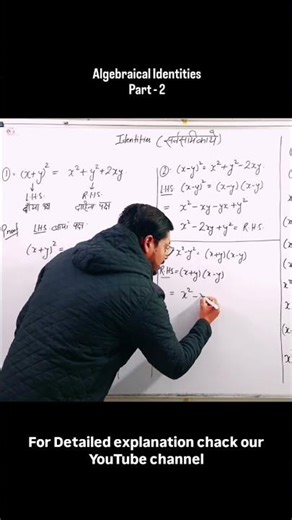 Algebraical Identities
Part - 2
Identities (सर्वसमिकायें)
①. (x+y)² = x² + y² + 2xy
L.H.S. R.H.S.
बायाँ पक्ष दायाँ पक्ष
Proof LHS बायां पक्ष
(x+y)² =
② (x-y)² = x² + y² - 2xy
LHS (x-y)² = (x-y) (x-y)
= x² - xy - yx + y²
x² - 2xy + y² = R.H.S.
x² - y² = (x+y) (x-y)
R.HS = (x+y) (x-y)
= x² - x
For Detailed explanation chack our
YouTube channel